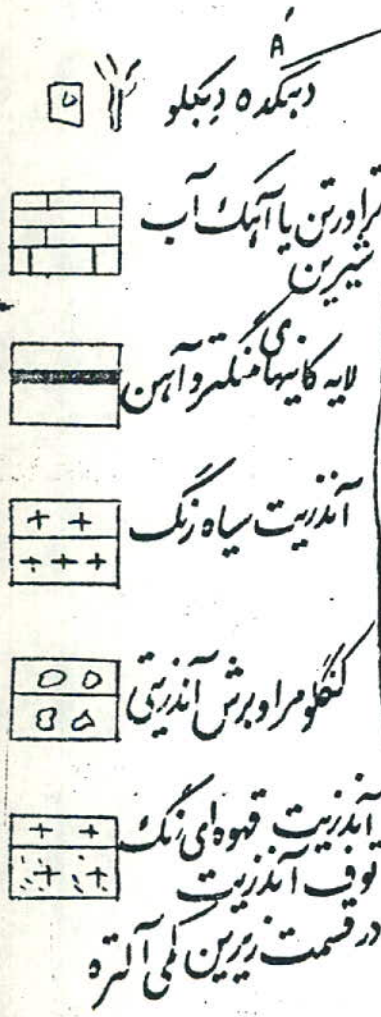 A'
دهکده دیکلو
تراورتن یا آهک آب
شیرین
لایه کانیهای منگنز و آهن
آندزیت سیاه رنگ
کنگلومرا و برش آندزیتی
آندزیت قهوه‌ای رنگ
توف آندزیت
در قسمت زیرین کمی آلتره